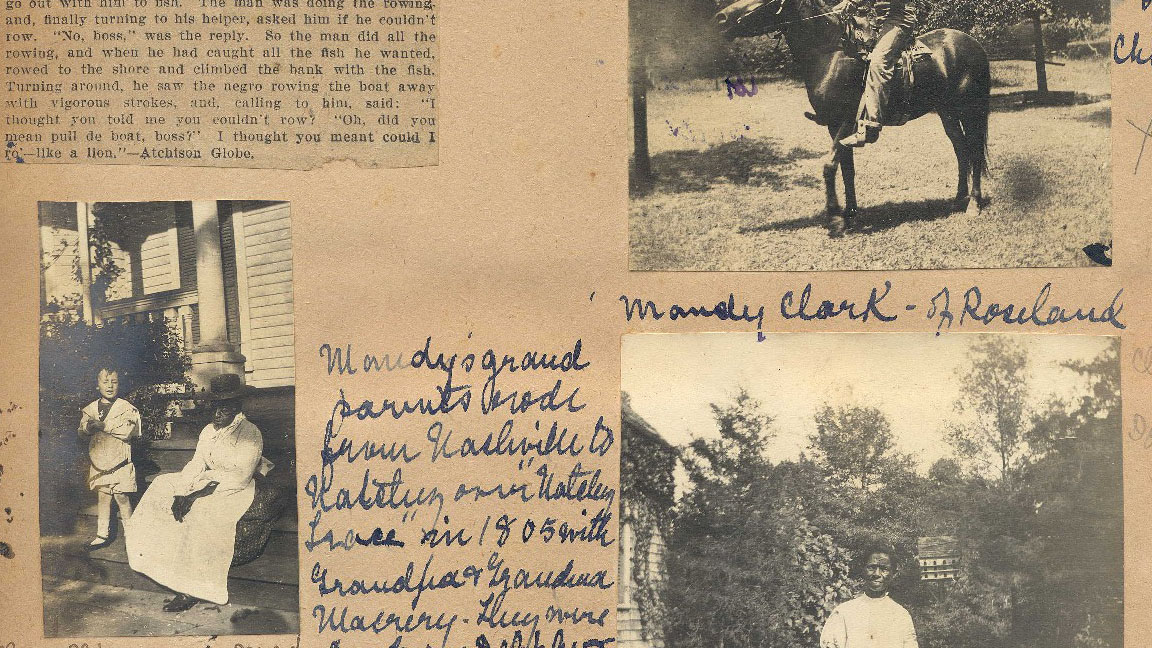 go out with him to fish. The man was doing the rowing,
and, finally turning to his helper, asked him if he couldn't
row. "No, boss," was the reply. So the man did all the
rowing, and when he had caught all the fish he wanted,
rowed to the shore and climbed the bank with the fish.
Turning around, he saw the negro rowing the boat away
with vigorous strokes, and, calling to him, said: "I
thought you told me you couldn't row? "Oh, did you
mean pull de boat, boss?" I thought you meant could I
ro'—like a lion,"—Atchison Globe.
Mandy Clark - of Roseland
Mandy's grand
parents rode
from Nashville to
Natchez over "Natchez
Trace" in 1805 with
Grandpa & Grandma
Macrery. They were